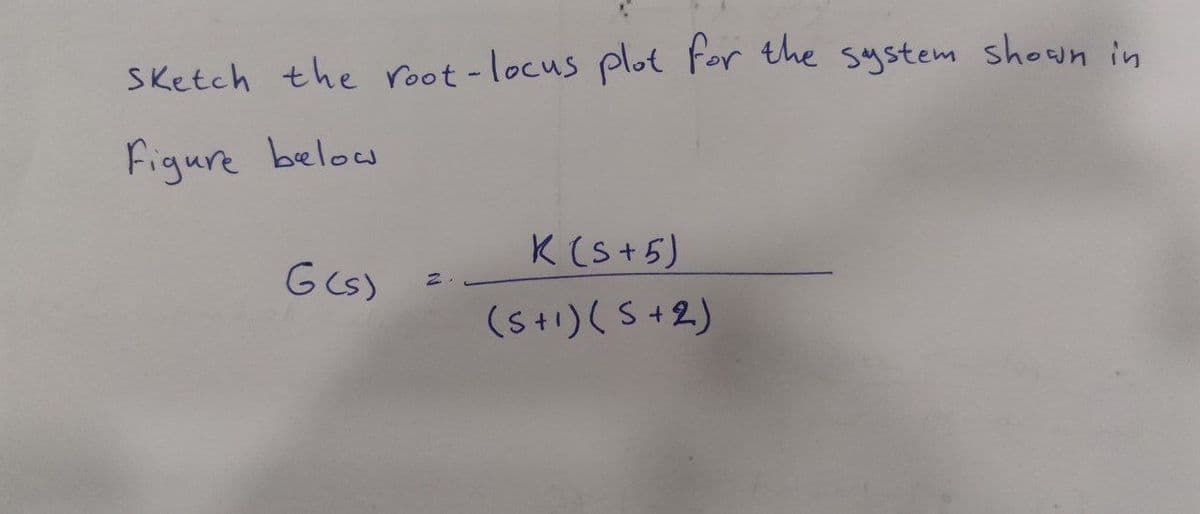 Sketch the root-locus plot for the system shown in
Figure below
K(s+5)
G(s) =
(s+1)(s+2)